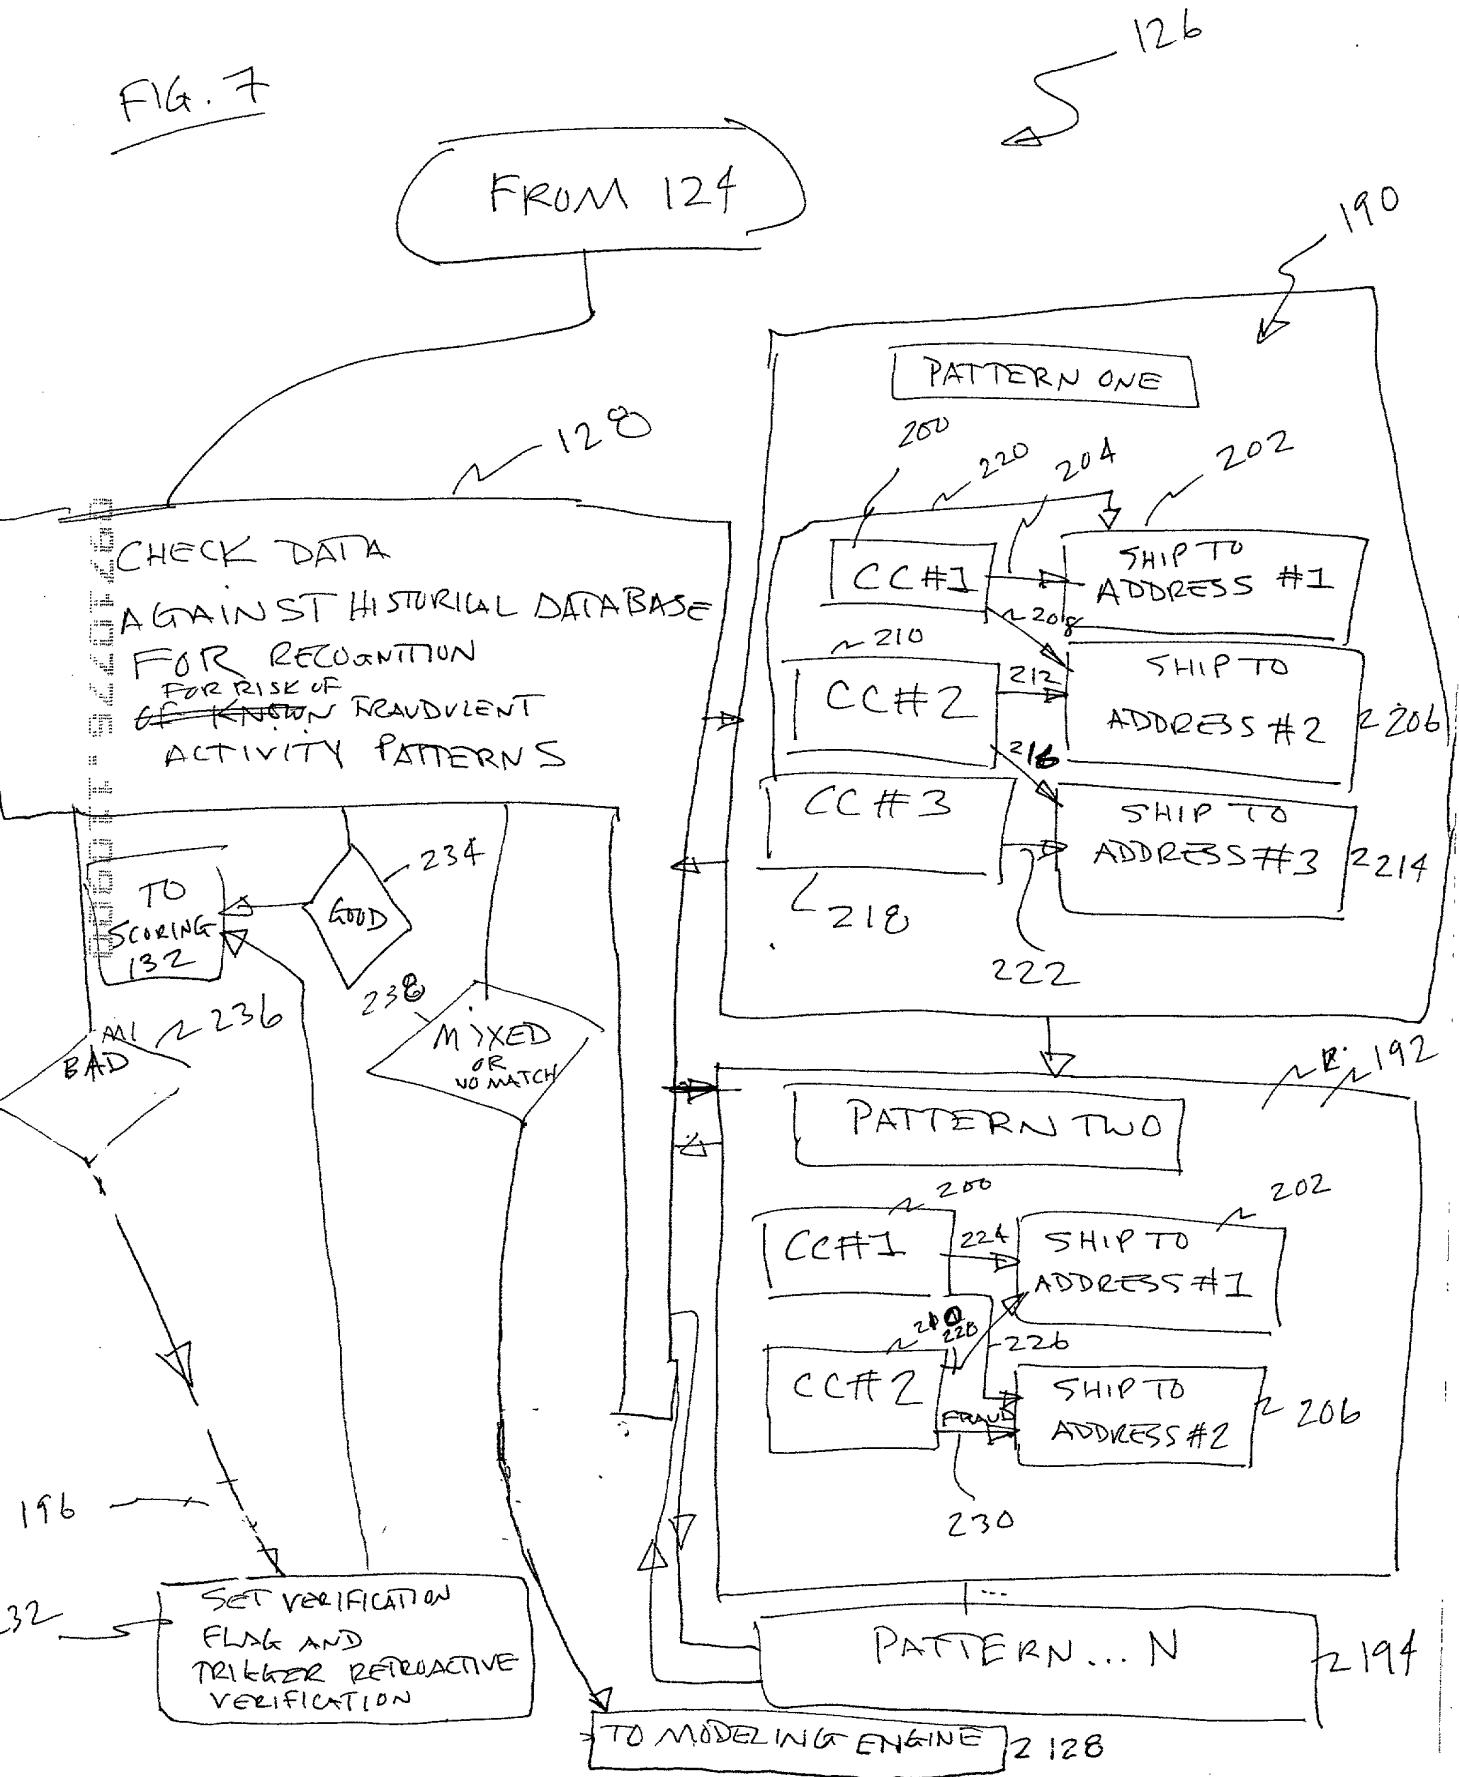 FIG. 7
126
FROM 124
190
PATTERN ONE
128
200
220
204
202
CHECK DATA
AGAINST HISTORICAL DATABASE
FOR RECOGNITION
FOR RISK OF
OF KNOWN FRAUDULENT
ACTIVITY PATTERNS
CC#1
SHIP TO
ADDRESS #1
208
210
CC#2
212
SHIP TO
ADDRESS #2
206
216
CC#3
SHIP TO
ADDRESS #3
214
218
222
TO
SCORING
132
234
GOOD
236
BAD
238
MIXED
OR
NO MATCH
192
PATTERN TWO
200
202
CC#1
224
SHIP TO
ADDRESS #1
226
CC#2
SHIP TO
ADDRESS #2
206
FRAUD
230
196
232
SET VERIFICATION
FLAG AND
TRIGGER RETROACTIVE
VERIFICATION
...
PATTERN... N
194
TO MODELING ENGINE
128